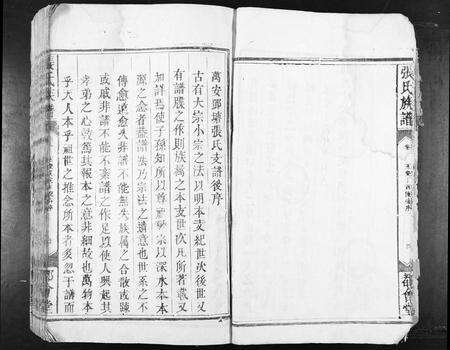 張氏族譜
都會堂
萬安鄧塘張氏支譜後序
古有大宗小宗之法以明本支紀世次後世又
有譜牒之作則族屬之本支世次凡所著載又
加詳焉使子孫知所以尊祖敬宗以深水木本
源之念者葢譜法乃宗法之遺意也世系之不
傳愈遠愈失非譜不能無失族屬之合散或疎
或戚非譜不能不紊譜之作足以使人興起其
孝弟之心敦篤其報本之意非細故也萬物本
乎天人本乎祖世之推念所本者多忽于譜而
張氏族譜